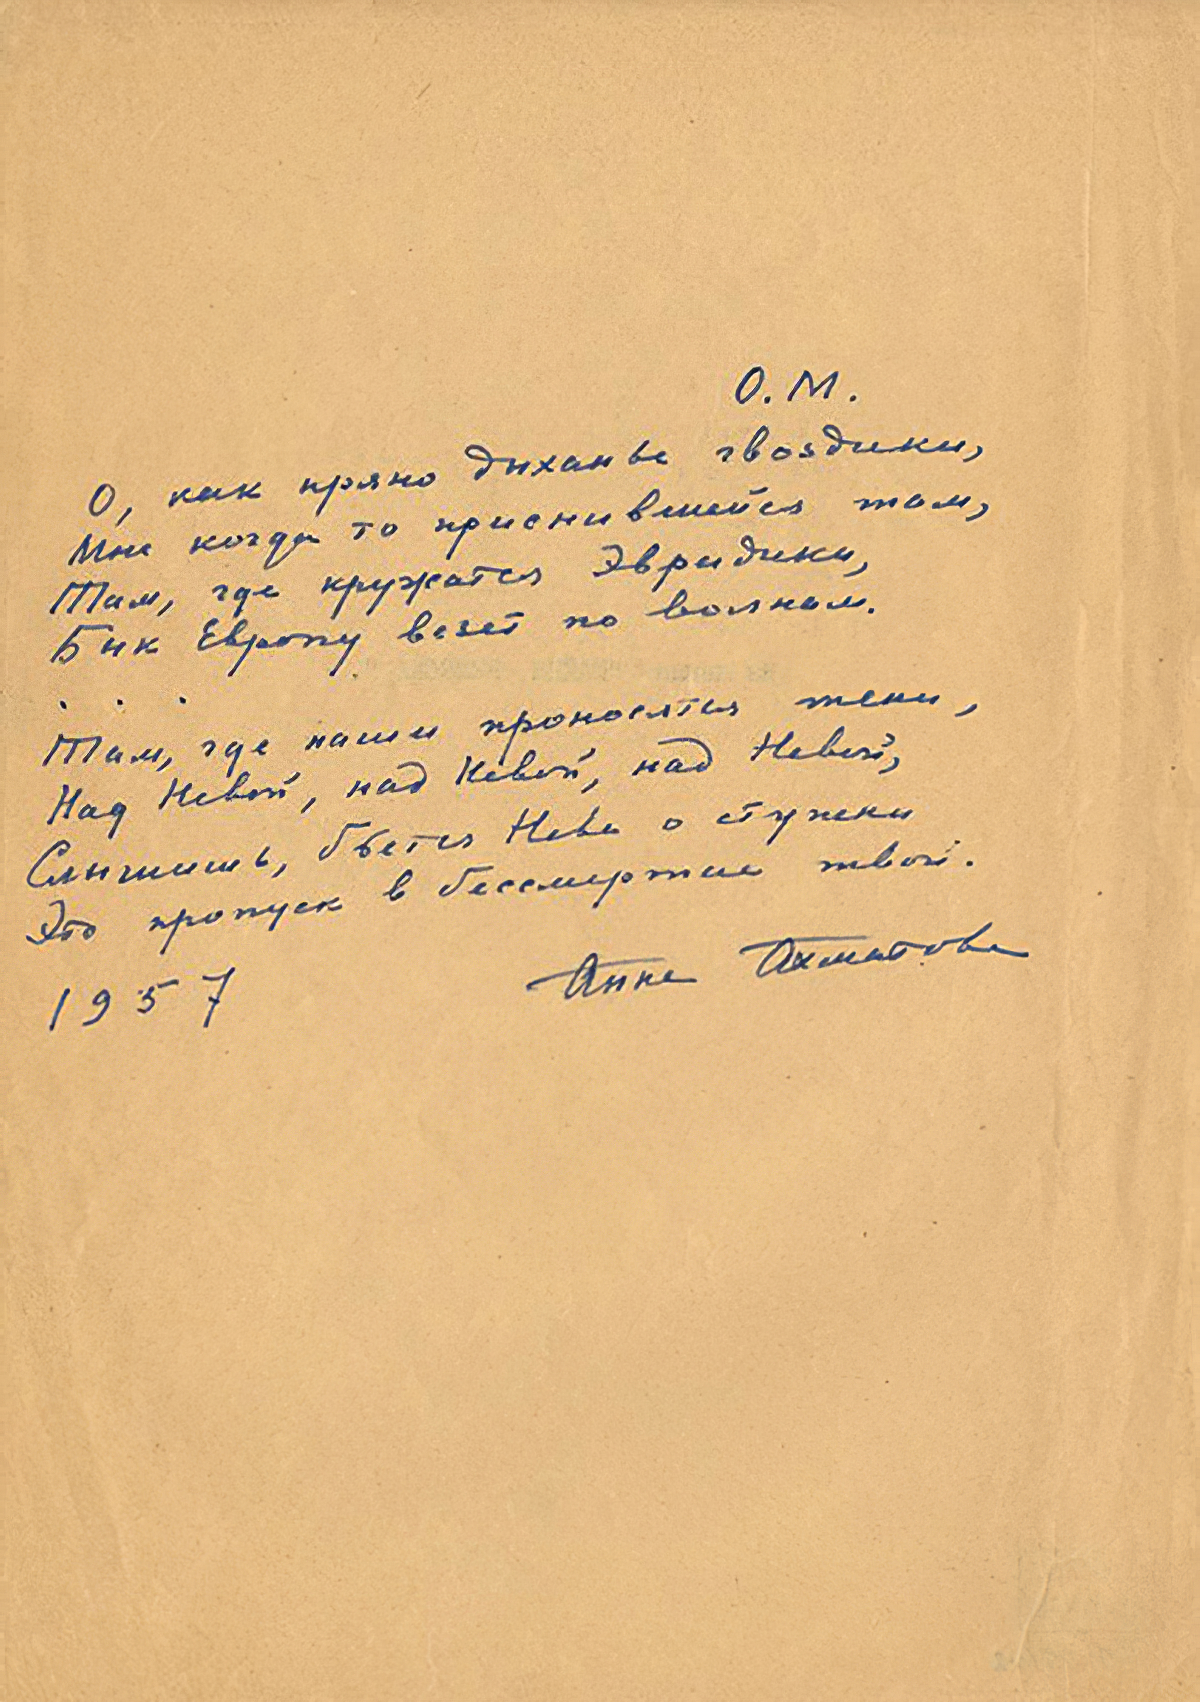 О. М.
О, как пряно дыханье гвоздики,
Мне когда то приснившейся там,
Там, где кружатся Эвридики,
Бык Европу везет по волнам.
. . .
Там, где наши проносятся тени,
Над Невой, над Невой, над Невой,
Слышишь, бьется Нева о ступени
Это пропуск в бессмертие твой.
1957 Анна Ахматова